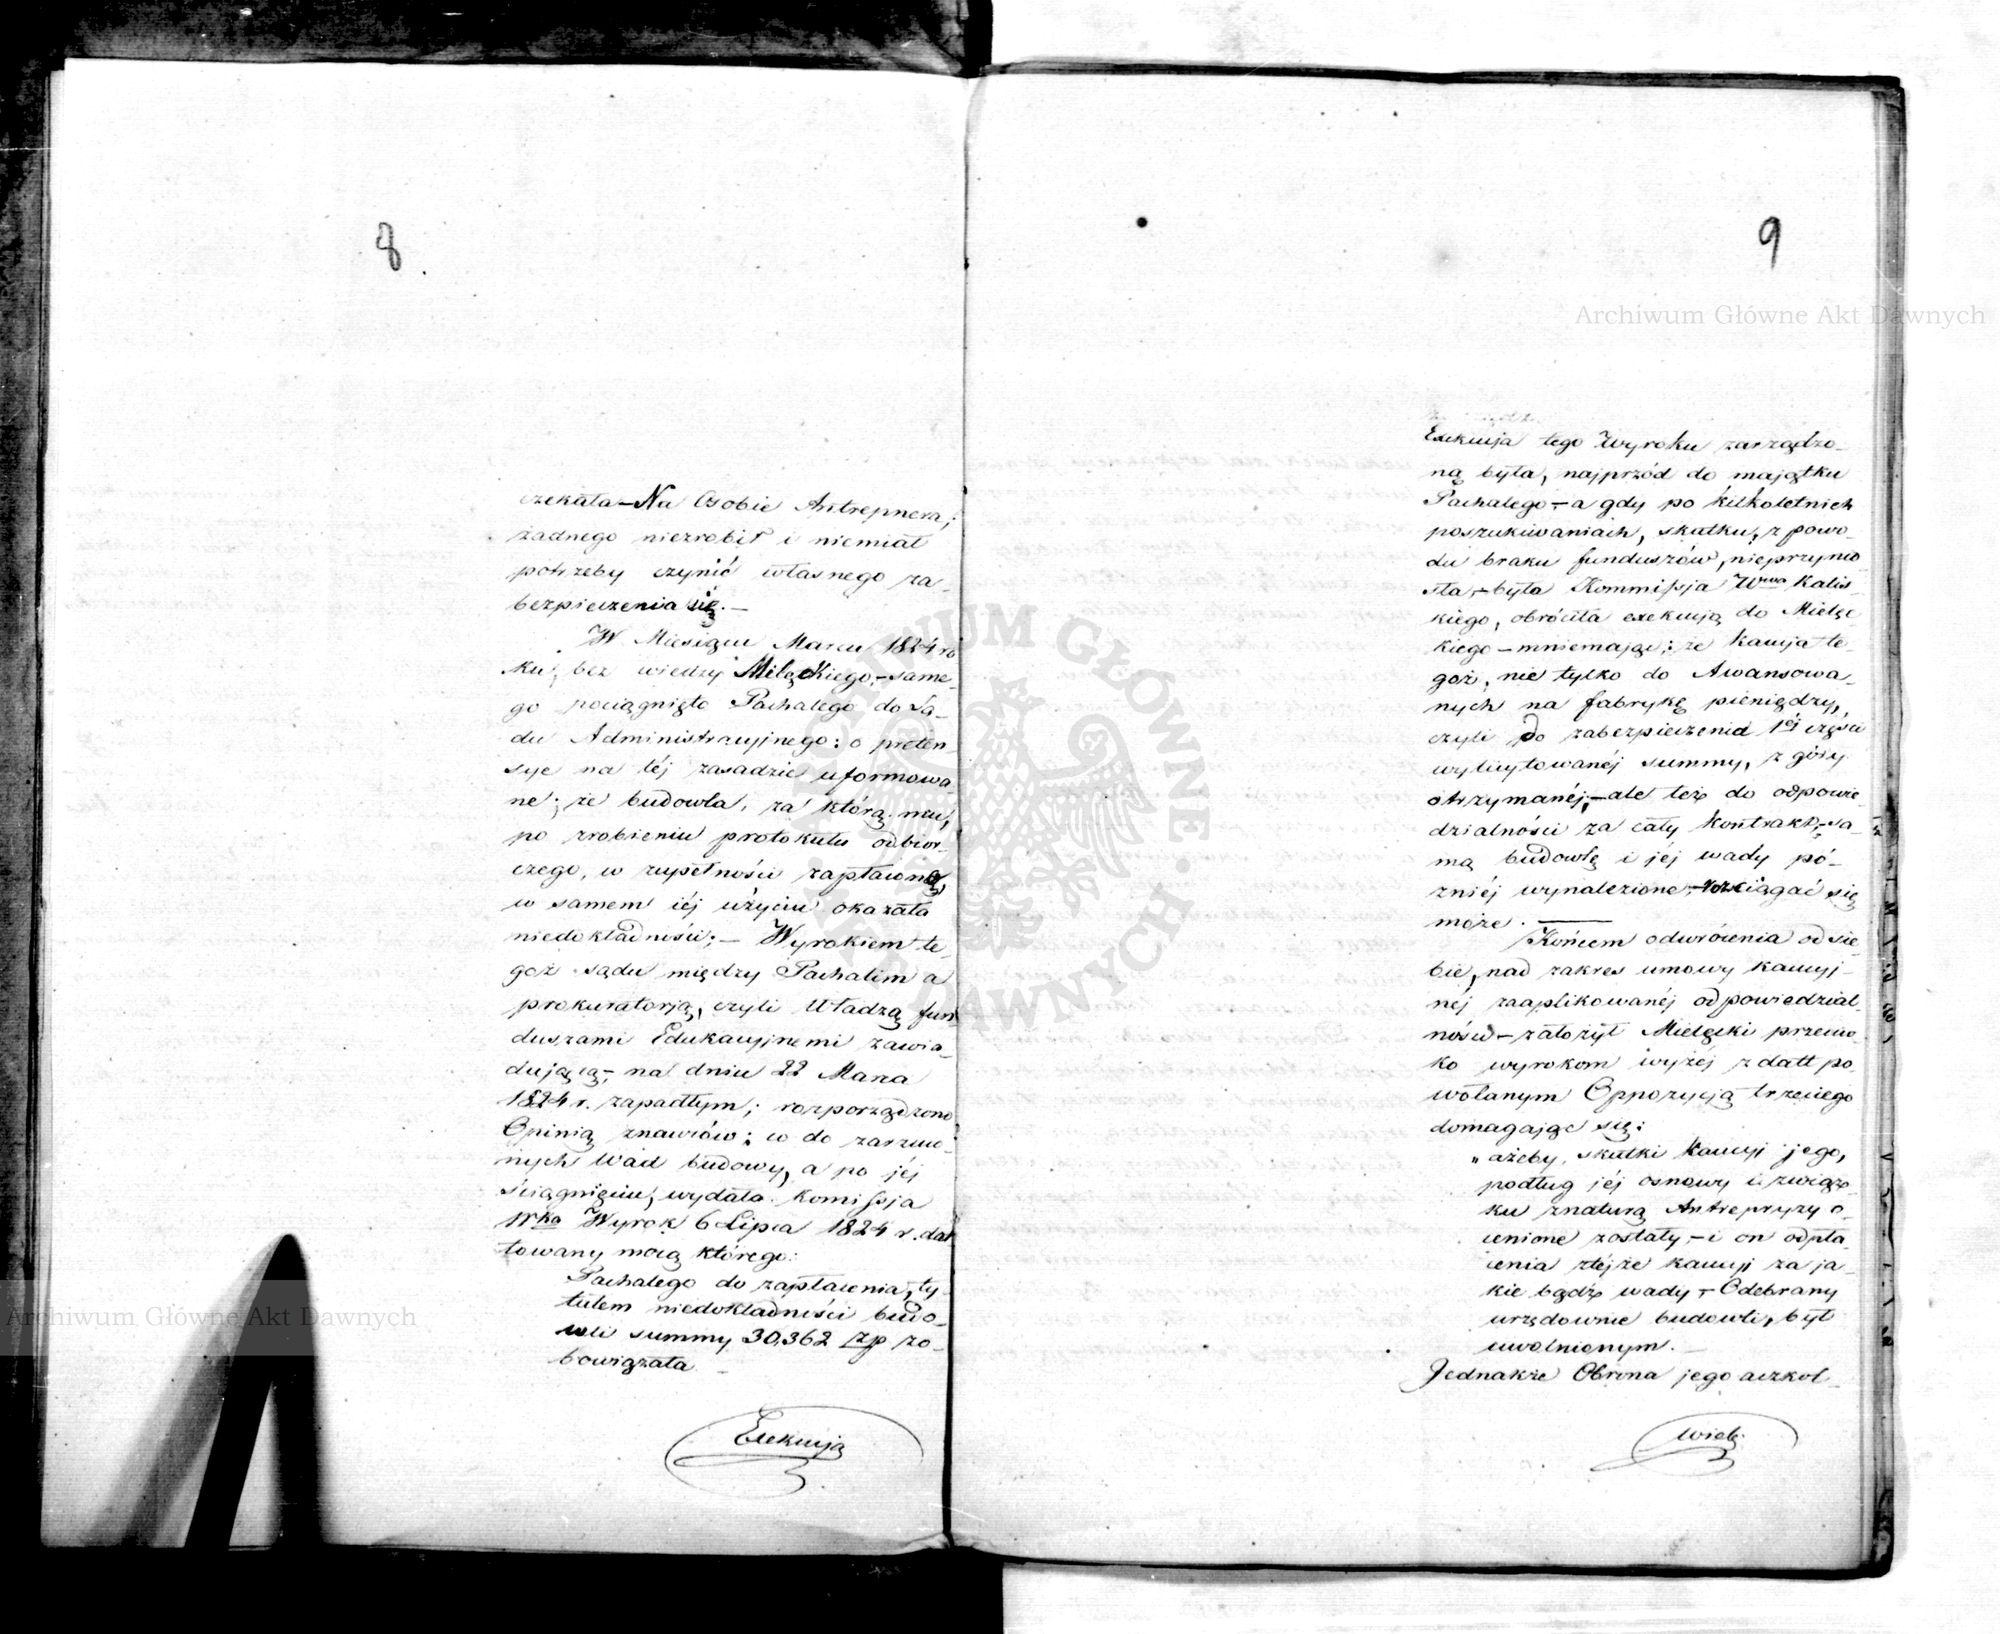 8
czekała – Na Osobie Antreprnera,
żadnego niezrobił i niemiał
potrzeby czynić własnego za-
bezpieczenia się. –
W Miesiącu Marcu 1824 ro
ku, bez wiedzy Milęckiego, – same-
go pociągnięto Pachalego do Sa-
du Administracyjnego: o preten
sye na téj zasadzie uformowa
ne; że budowla, za którą mu,
po zrobieniu protokułu odbior-
czego, w zupełności zapłacioną,
w samem iéj użyciu okazała
niedokładności; – Wyrokiem te-
goż sądu między Pachalim a
prokuratorją, czyli Władzą fun
duszami Edukacyjnemi zawia-
dującą, – na dniu 22 Marca
1824 r. zapadłym; rozporządzono
Opinią znawców; co do zarzuco
nych Wad budowy, a po jéj
ściągnięciu, wydała Komissja
Wka Wyrok 6 Lipca 1824 r. dat
towany mocą którego:
Pachalego do zapłacenia, ty
tułem niedokładności budo-
wli summy 30,362 zp zo-
bowiązała. –
Exekucją
9
Archiwum Główne Akt Dawnych
Exekucja tego Wyroku zarządzo-
ną była, najprzód do majątku
Pachalego – a gdy po kilkoletnich
poszukiwaniach, skutku, z powo-
du braku funduszów, nieprzynio
sła, – była Kommissja Wwa Kalis
kiego, obróciła exekucją do Mielęc
kiego – mniemając; że Kaucja te-
goż, nie tylko do Awansowa-
nych na fabrykę pieniędzy,
czyli do zabezpieczenia 1éj części
wylicytowanéj summy, z góry
otrzymanéj, – ale też do odpowie
dzialności za cały Kontrakt, – sa-
mą budowlę i jéj wady pó-
źniéj wynalezione, – rozciągać się
może. –
Końcem odwrócenia od sie
bie, nad zakres umowy Kaucyj-
néj zaaplikowanéj odpowiedzial
ności – założył Mielęcki przeciw
ko wyrokom wyżéj z datt po-
wołanym Oppozycją trzeciego
domagając się:
„ ażeby, skutki Kaucyi jego,
podług jéj osnowy i związ-
ku z naturą Antrepryzy o-
cenione zostały, – i on odpła-
cenia téjże Kaucyi za ja-
kie bądź wady – Odebrany
urzędownie budowli, był
uwolnionym. –
Jednakże Obrona jego aczkol-
wiek.
Archiwum Główne Akt Dawnych
ARCHIWUM GŁÓWNE AKT DAWNYCH